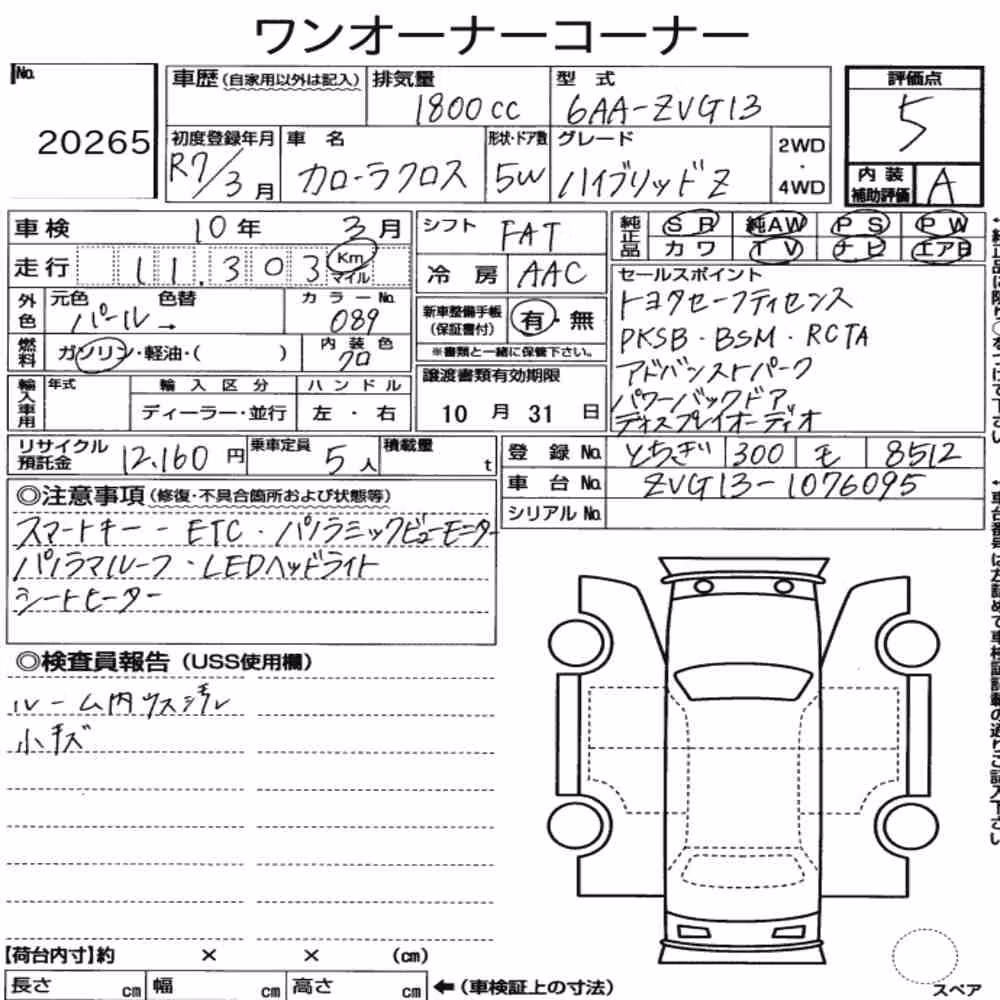 ワンオーナーコーナー
No. 20265
車歴(自家用以外は記入)
排気量 1800cc
型式 6AA-ZVG13
評価点 5
初度登録年月 R7/3月
車名 カローラクロス
形状・ドア数 5W
グレード ハイブリッドZ
2WD・4WD
内装補助評価 A
車検 10年 3月
走行 11,303 Km マイル
シフト FAT
冷房 AAC
純正品 SR 純AW PS PW
カワ TV ナビ エアB
外色 元色 パール→ 色替
カラーNo. 089
燃料 ガソリン・軽油・( )
内装色 クロ
新車整備手帳(保証書付) 有・無
※書類と一緒に保管下さい。
セールスポイント
トヨタセーフティセンス
PKSB・BSM・RCTA
アドバンストパーク
パワーバックドア
ディスプレイオーディオ
輸入車用 年式 輸入区分 ハンドル
ディーラー・並行 左・右
譲渡書類有効期限
10月31日
リサイクル預託金 12,160円
乗車定員 5人
積載量 t
登録No. とちぎ 300 も 8512
車台No. ZVG13-1076095
シリアルNo.
◎注意事項(修復・不具合箇所および状態等)
スマートキー・ETC・パノラミックビューモニター
パノラマルーフ・LEDヘッドライト
シートヒーター
◎検査員報告(USS使用欄)
ルーム内ウスヨゴレ
小キズ
【荷台内寸】約 × × (cm)
長さ cm 幅 cm 高さ cm ←(車検証上の寸法)
スペア
←純正品に限り○をつけて下さい
←車台番号は左詰めで車検証記載の通りご記入下さい